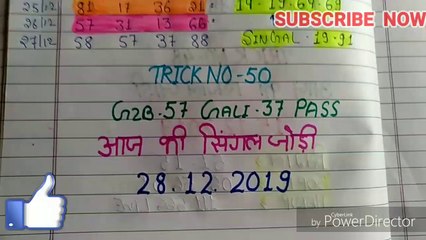 25/12 81 17 36 21 14-19-69-69
SUBSCRIBE NOW
26/12 57 31 13 68
27/12 58 57 37 88 SINGAL-19-91
TRICK NO-50
GZB.57 GALI.37 PASS
आज की सिंगल जोड़ी
28.12.2019
CyberLink
by PowerDirector